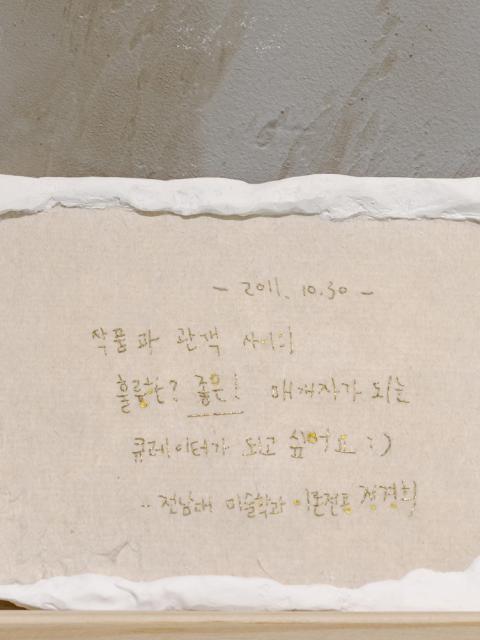 - 2011. 10.30 -
작품과 관객 사이의
훌륭한? 좋은! 매개자가 되는
큐레이터가 되고 싶어요 :)
.. 전남대 미술학과 이론전공 정경희